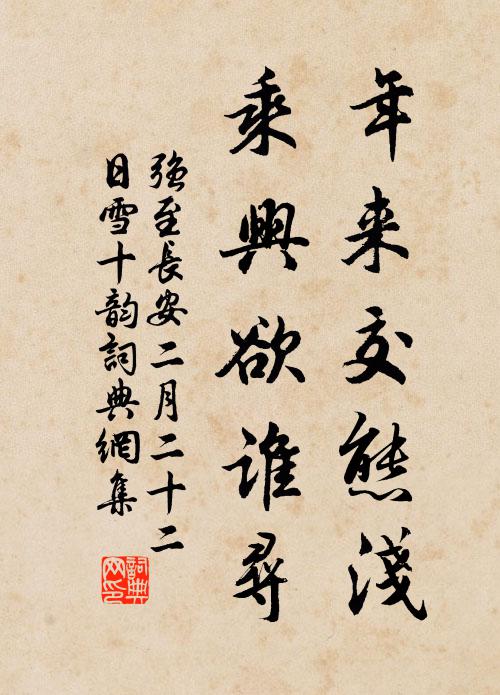 年来交態淺
乘興欲誰尋
强至長安二月二十二
日雪十韵詞典網集
詞典
网印